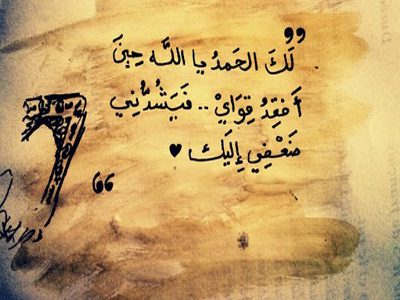 ”لَكَ الحَمدُ يا اللَّه حِينَ
أَفقِدُ قِوَايْ .. فَيَشُدُّنِي
ضَعْفِي إِليَك ♥
“